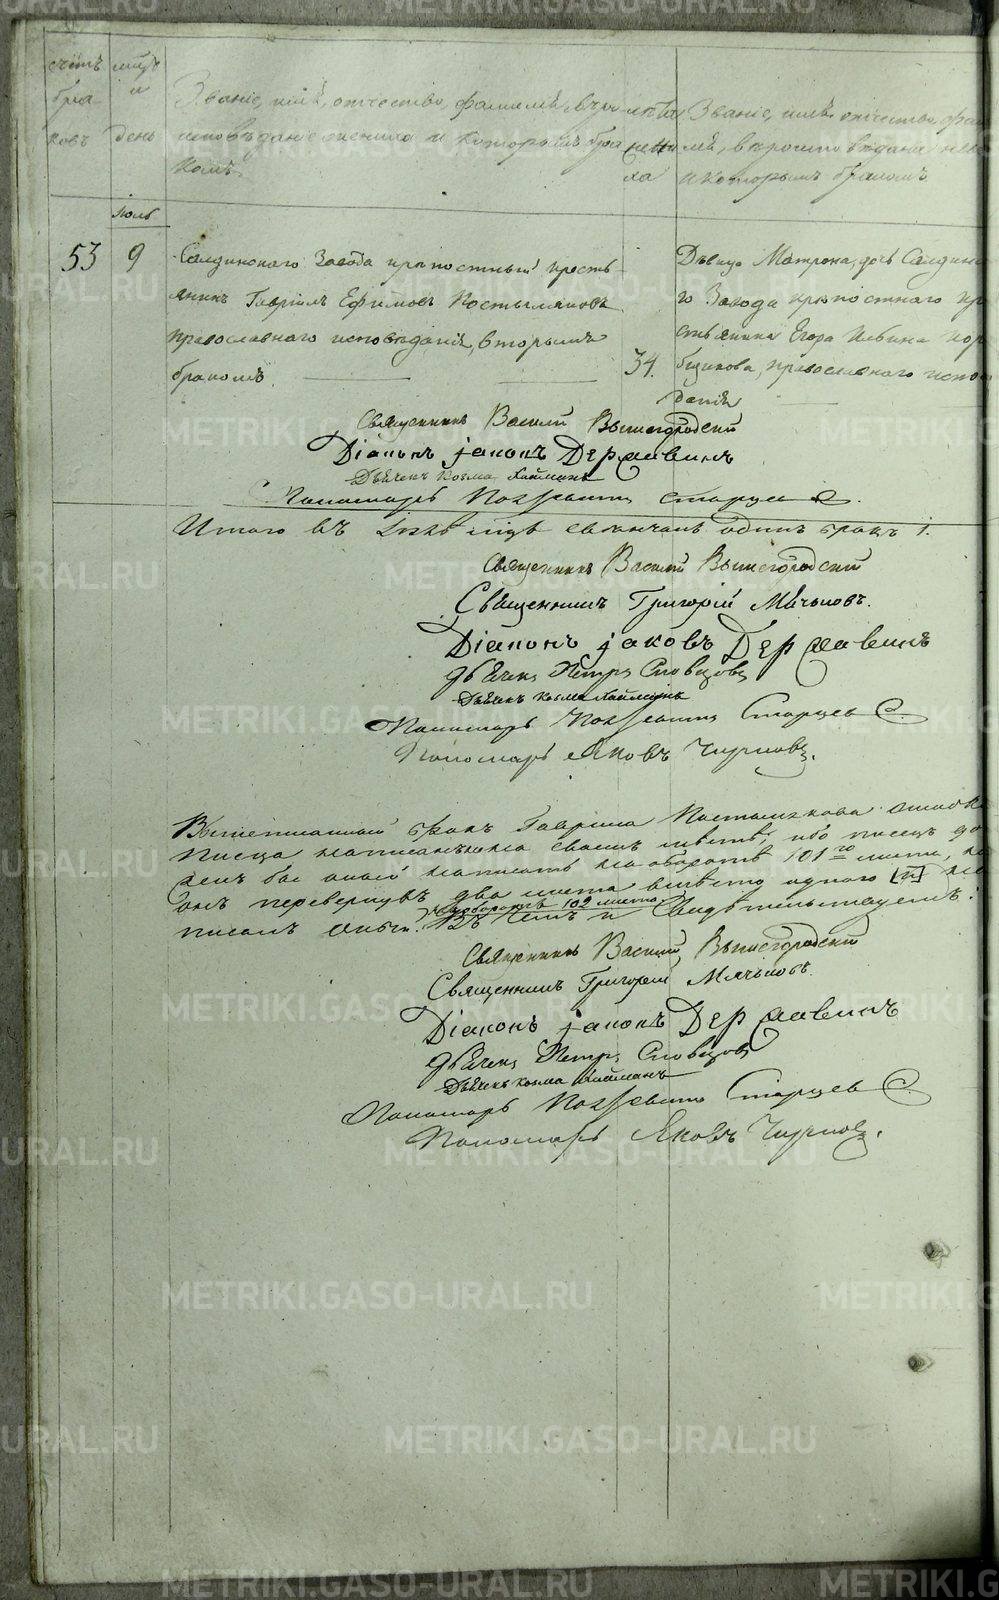 METRIKI.GASO-URAL.RU
счетъ бра ковъ
мцъ и день
Званіе, имя, отчество, фамилія, вѣро
исповѣданіе жениха и которымъ бра
комъ
лѣта жени ха
Званіе, имя, отчество, фа
мілія, вѣроисповѣданіе невѣ
и которымъ бракомъ
Іюль
53
9
Салдинского Завода крѣпостный кресть
янинъ Гавріилъ Ефимовъ Костылянковъ
православнаго исповѣданія, вторымъ
бракомъ.
34.
Дѣвица Матрона, дочь Салдинска
го Завода крѣпостнаго кр
стьянина Егора Ильина
православнаго испо
данія
Священникъ Василій Вышегородскій
Діаконъ Іаковъ Державинъ
Дьячекъ Козма
Пономарь Старцевъ
Итого въ Іюлѣ мцѣ свѣнчанъ одинъ бракъ 1.
Священникъ Василій Вышегородскій
Священникъ Григорій Мячьковъ.
Діаконъ Іаковъ Державинъ
Дьячекъ Петръ Словцовъ
Дьячекъ Козма
Пономарь Старцевъ
Пономарь Яковъ Чирковъ.
Вышеписанный бракъ Гавриила Костылянкова
писца написанъ не на своемъ мѣстѣ, ибо писецъ до
женъ былъ оный написать на оборотѣ 101го листа, но
онъ перевернувъ два листа вмѣсто одного [и] на
на оборотѣ 102 листа
писалъ Въ чемъ и свидѣтельствуемъ:
Священникъ Василій Вышегородскій
Священникъ Григорій Мячьковъ.
Діаконъ Іаковъ Державинъ
Дьячекъ Петръ Словцовъ
Дьячекъ Козма
Пономарь Старцевъ
Пономарь Яковъ Чирковъ.